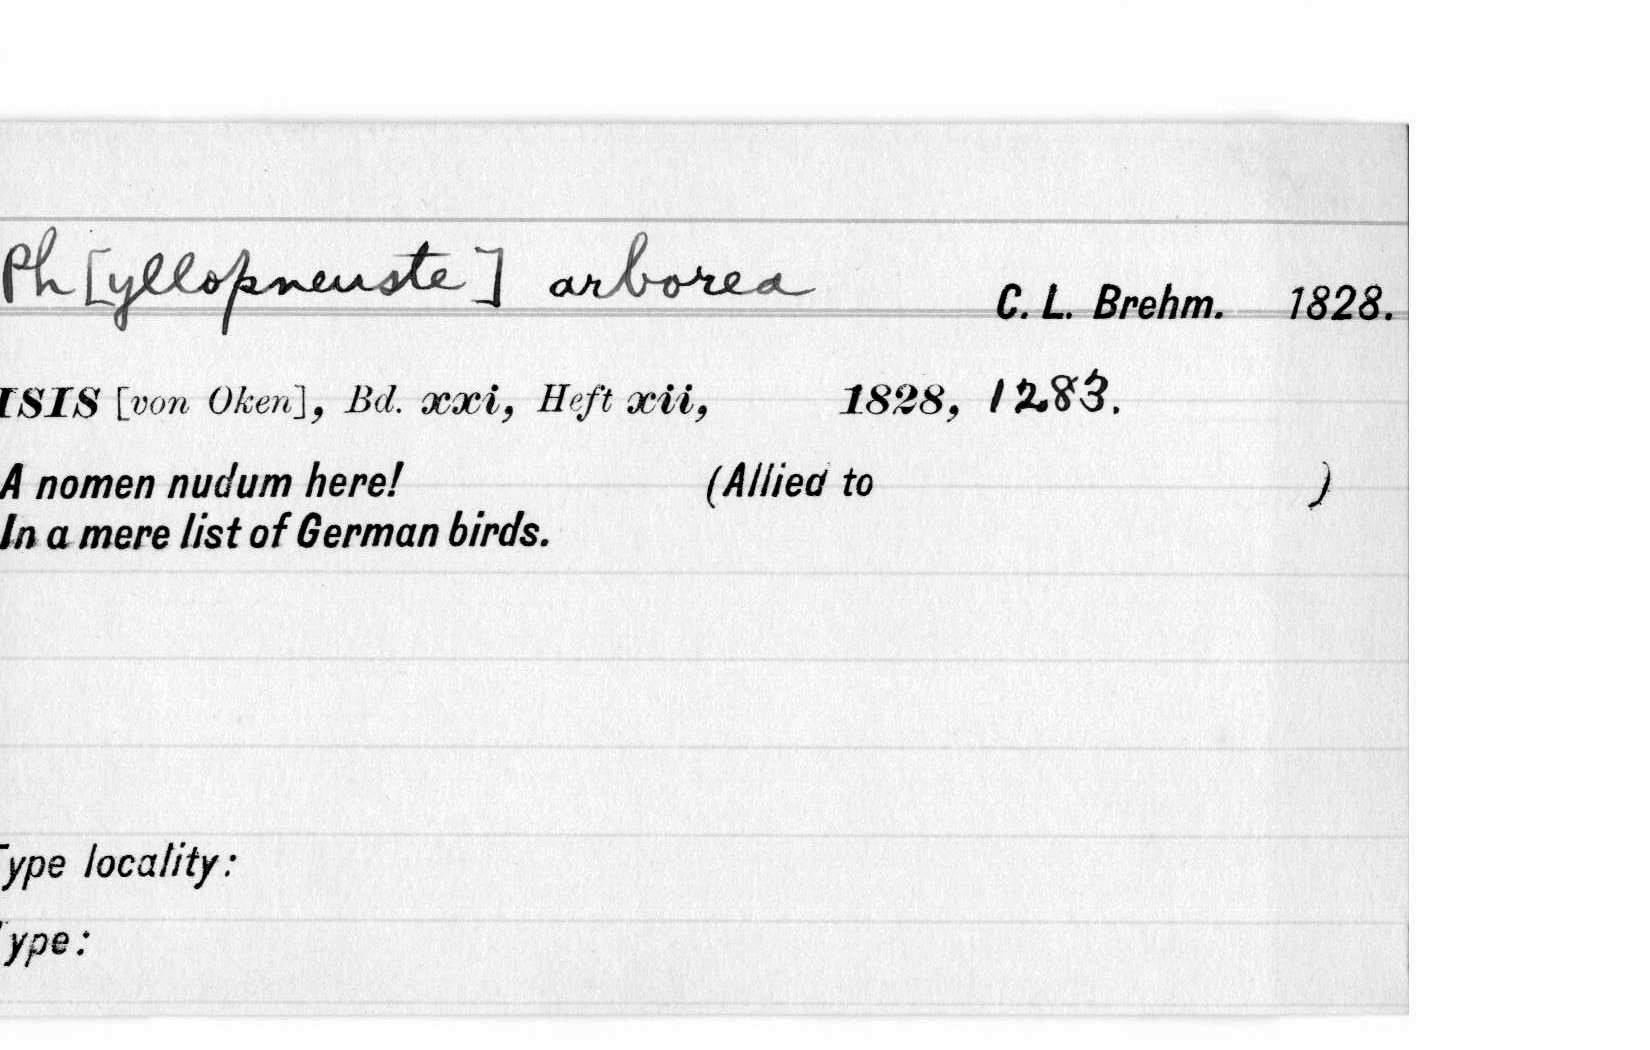 Ph[yllopneuste] arborea C. L. Brehm. 1828.
ISIS [von Oken], Bd. xxi, Heft xii, 1828, 1283.
A nomen nudum here! (Allied to )
In a mere list of German birds.
Type locality:
Type: